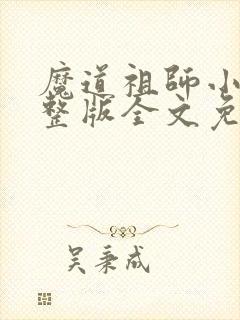 魔道祖師小
整版全文免
吴秉成